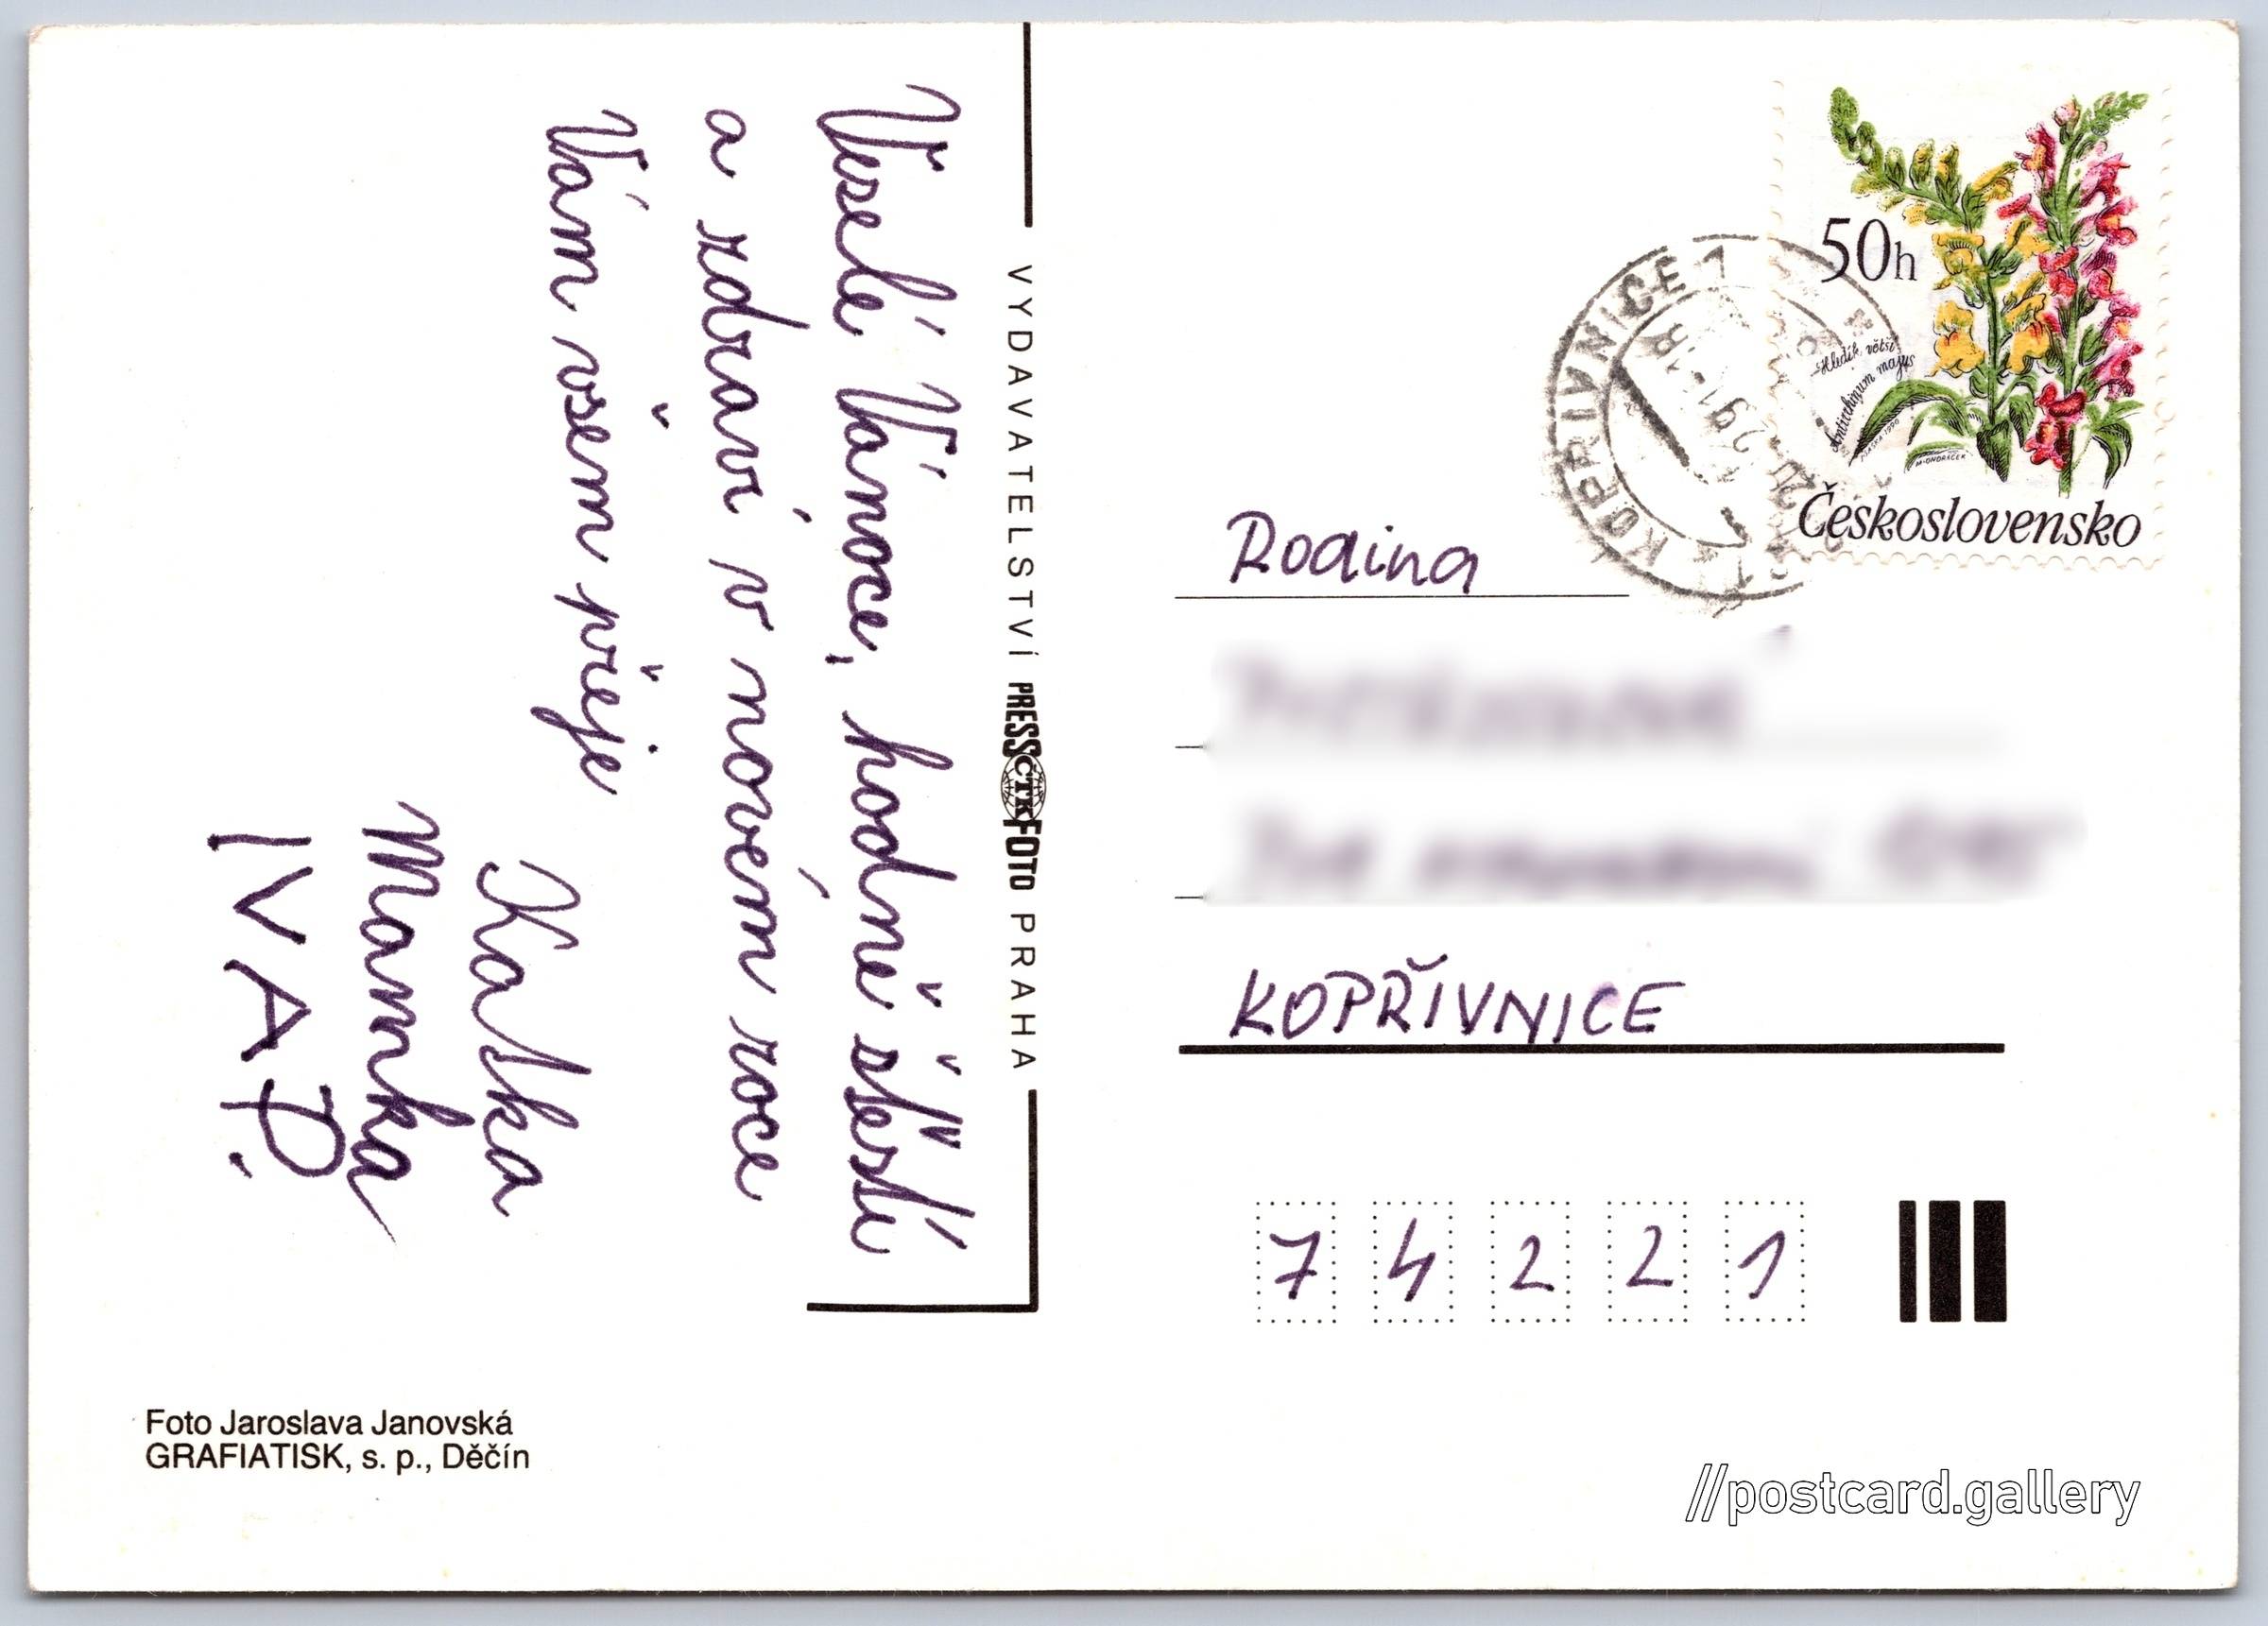 Veselé Vánoce, hodně štěstí
a zdraví v novém roce
Vám všem přeje
Katka
Mamka
IVA P.
VYDAVATELSTVÍ PRESSČTKFOTO PRAHA
50h
Hledík větší
Antirrhinum majus
M. ONDRÁČEK
Československo
KOPŘIVNICE 1
Rodina
KOPŘIVNICE
7 4 2 2 1
Foto Jaroslava Janovská
GRAFIATISK, s. p., Děčín
//postcard.gallery